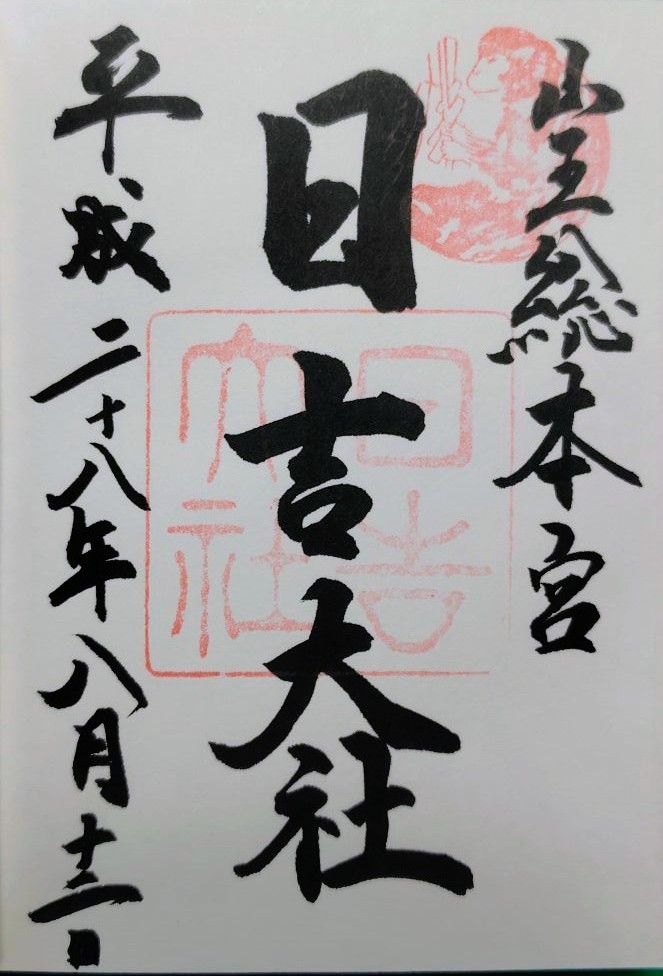 山王総本宮
日吉大社
平成二十八年八月十二日
日吉大社